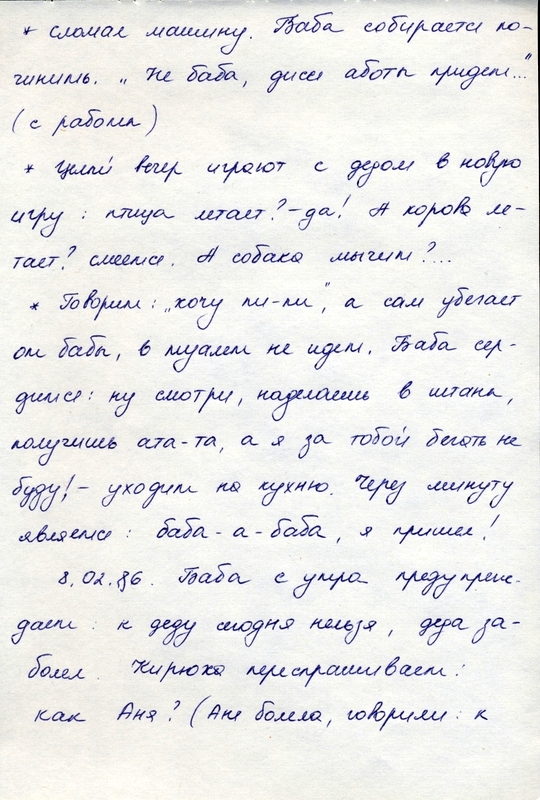 * сломал машину. Баба собирается по-
чинить. „Не баба, дися аботы придет..."
(с работы)
* Целый вечер играют с дедом в новую
игру: птица летает? - да! А корова ле-
тает? смеется. А собака мычит?...
* Говорит: „хочу пи-пи", а сам убегает
от бабы, в туалет не идет. Баба сер-
дится: ну смотри, наделаешь в штаны,
получишь ата-та, а я за тобой бегать не
буду! - уходит на кухню. Через минуту
является: баба-а-баба, я пришел!
8.02.86. Баба с утра предупреж-
дает: к деду сегодня нельзя, деда за-
болел. Кирюха переспрашивает:
как Аня? (Аня болела, говорили: к